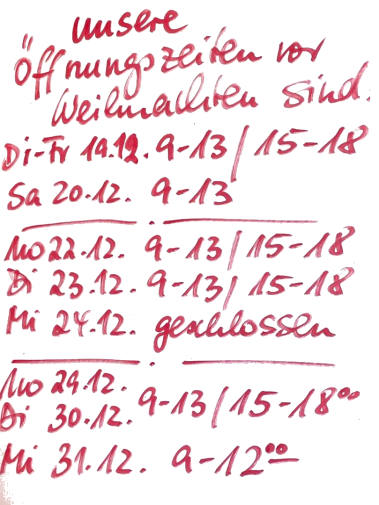 unsere
Öffnungszeiten vor
Weihnachten sind:
Di-Fr 19.12. 9-13/15-18
Sa 20.12. 9-13
Mo 22.12. 9-13/15-18
Di 23.12. 9-13/15-18
Mi 24.12. geschlossen
Mo 29.12.
Di 30.12. 9-13/15-18⁰⁰
Mi 31.12. 9-12⁰⁰